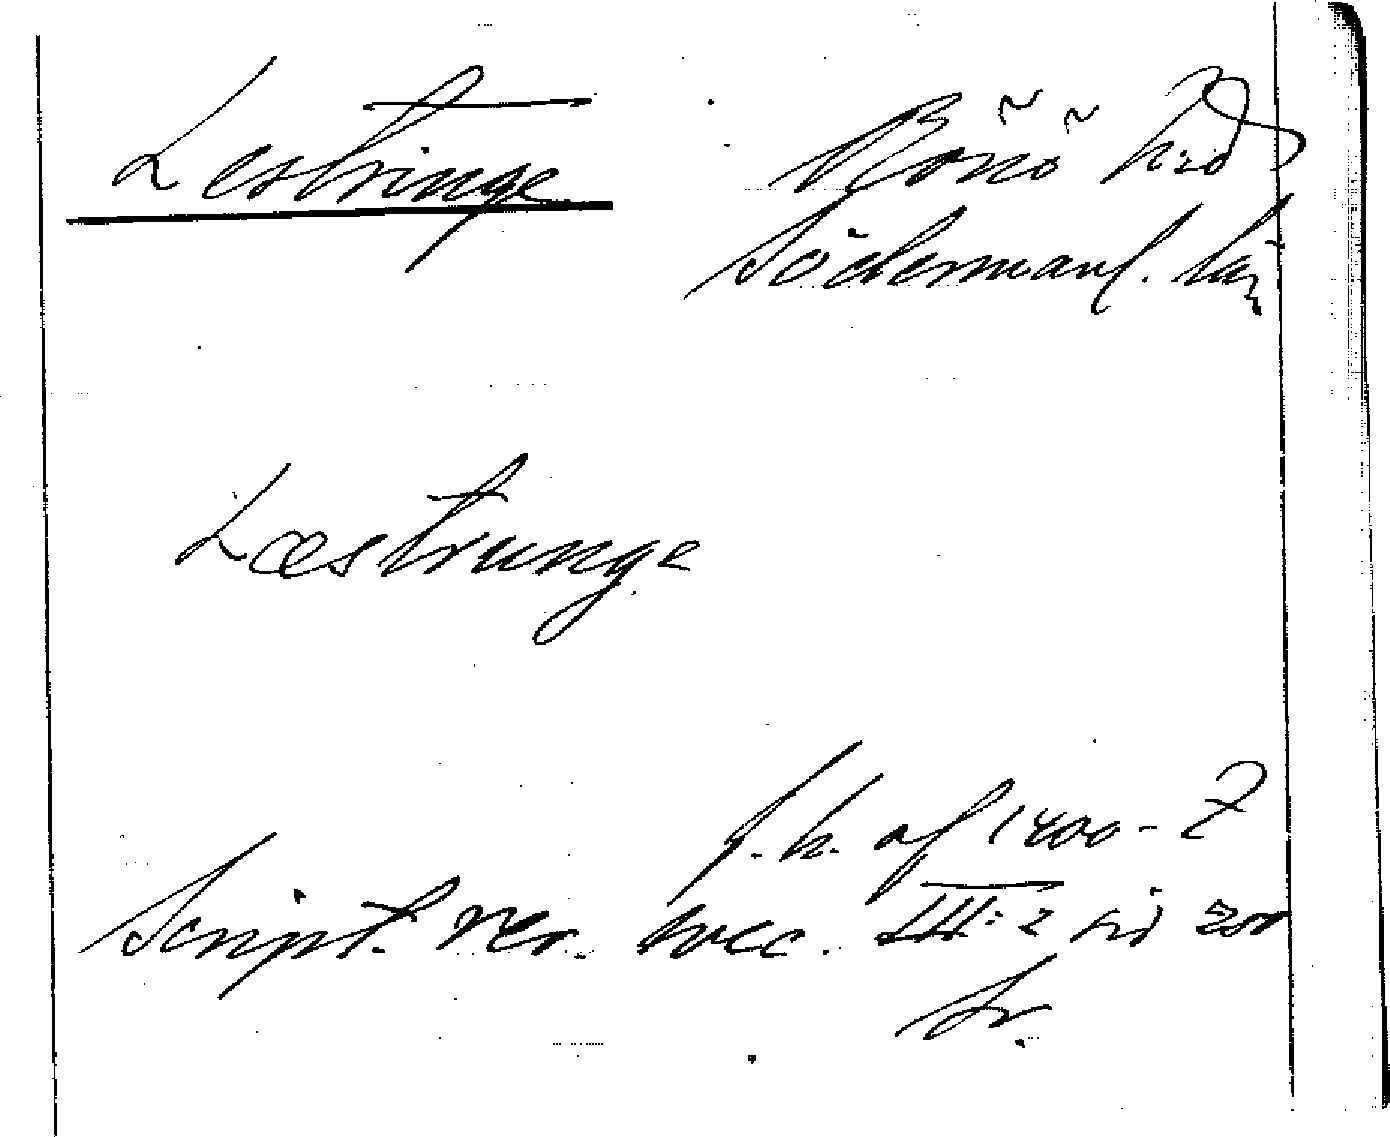 Lestringe
Rönö hd
Södermanl. län
Læstrunge
f. h. af 1400-t
Script. rer. svec. III:2 sid 201
Sv.